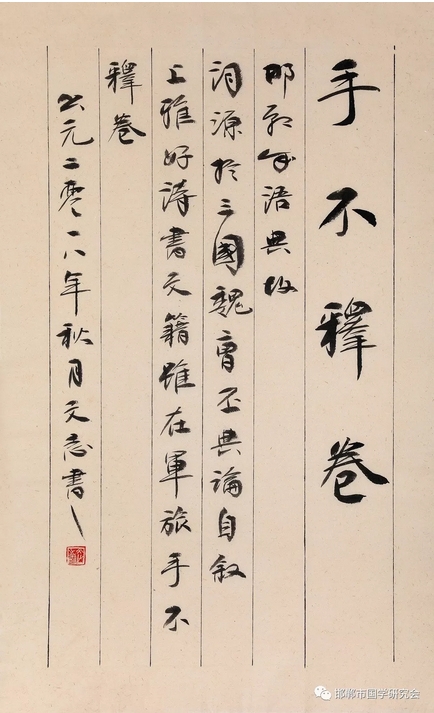 手不釋卷
邯鄲成语典故
词源於三國魏曹丕典論自敘
上雅好詩書文籍雖在軍旅手不
釋卷
公元二零一八年秋月文志書
邯郸市国学研究会